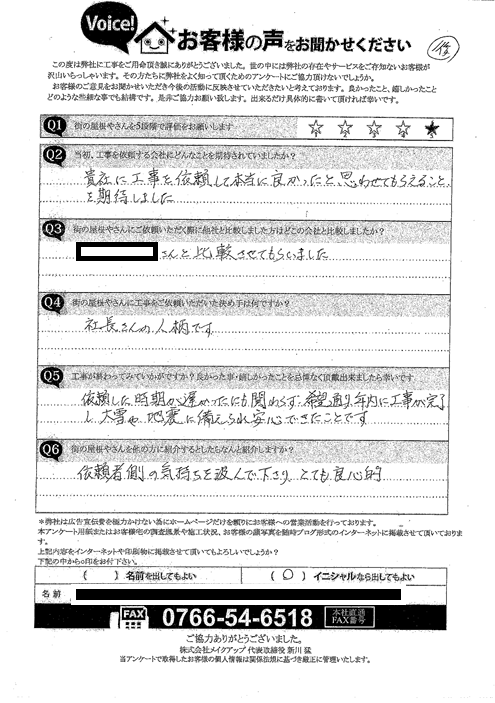 Voice!
お客様の声をお聞かせください
この度は弊社に工事をご用命頂き誠にありがとうございました。世の中には弊社の存在やサービスをご存知ないお客様が
沢山いらっしゃいます。その方たちに弊社をよく知って頂くためのアンケートにご協力頂けないでしょうか。
お客様のご意見をお聞かせいただき今後の活動に反映させていただきたいと考えております。良かったこと、嬉しかったこと
どのような些細な事でも結構です。是非ご協力お願い致します。出来るだけ具体的に書いて頂ければ幸いです。
Q1 街の屋根やさんを5段階で評価をお願いします
☆ ☆ ☆ ☆ ★
Q2 当初、工事を依頼する会社にどんなことを期待されていましたか?
貴社に工事を依頼して本当に良かったと思わせてもらえること、
を期待しました
Q3 街の屋根やさんにご依頼いただく際に他社と比較しました方はどこの会社と比較しましたか?
さんと比較させてもらいました
Q4 街の屋根やさんに工事をご依頼いただいた決め手は何ですか?
社長さんの人柄です
Q5 工事が終わってみていかがですか?良かった事・嬉しかったことを忌憚なく頂戴出来ましたら幸いです
依頼した時期が遅かったにも関わらず、希望通り年内に工事が完了
し、大雪や地震に備えられ安心できたことです
Q6 街の屋根やさんを他の方に紹介するとしたらなんと紹介しますか?
依頼者側の気持ちを汲んで下さり、とても良心的
*弊社は広告宣伝費を極力かけない為にホームページだけを頼りにお客様への営業活動を行っております。
本アンケート用紙またはお客様宅の調査風景や施工状況、お客様の顔写真を随時ブログ形式のインターネットに掲載させて頂いておりま
す。
上記内容をインターネットや印刷物に掲載させて頂いてもよろしいでしょうか?
下記の中から○印をお付け下さい。
( ) 名前を出してもよい
( ○ ) イニシャルなら出してもよい
名前
FAX 0766-54-6518 本社直通 FAX番号
ご協力ありがとうございました。
株式会社メイクアップ 代表取締役 新川 猛
当アンケートで取得したお客様の個人情報は関係法規に基づき厳正に管理いたします。